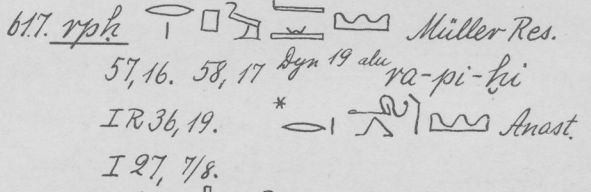 617. rpḥ 𓂋𓏤 𓊪 𓈉 Müller Res.
57,16. 58,17 Dyn 19 alu ra-pi-ḫi
I R 36,19. * 𓂋𓏤 𓈉 Anast.
I 27, 7/8.